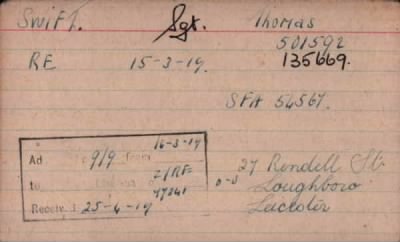 SWIFT. Sgt. Thomas
501592
RE 15-3-19. 135669.
SFA 54567.
16-3-19
Ad 9/9 from
2/RE
to
77041
Receive 25-4-19
27 Rendell St.
Loughboro'
Leicester